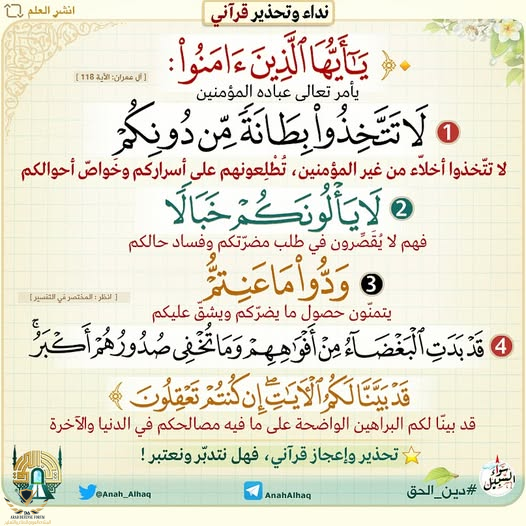 انشر العلم
نداء وتحذير قرآني
﴿ يَٰٓأَيُّهَا ٱلَّذِينَ ءَامَنُوا۟ :
[ آل عمران: الآية 118 ]
يأمر تعالى عباده المؤمنين
1 لَا تَتَّخِذُوا۟ بِطَانَةً مِّن دُونِكُمْ
لا تتّخذوا أخلّاء من غير المؤمنين، تُطْلِعونهم على أسراركم وخَواصّ أحوالكم
2 لَا يَأْلُونَكُمْ خَبَالًا
فهم لا يُقَصِّرون في طلب مضرّتكم وفساد حالكم
3 وَدُّوا۟ مَا عَنِتُّمْ
[ انظر : المختصر في التفسير ]
يتمنّون حصول ما يضرّكم ويشقّ عليكم
4 قَدْ بَدَتِ ٱلْبَغْضَآءُ مِنْ أَفْوَٰهِهِمْ وَمَا تُخْفِى صُدُورُهُمْ أَكْبَرُ ۚ
قَدْ بَيَّنَّا لَكُمُ ٱلْءَايَٰتِ ۖ إِن كُنتُمْ تَعْقِلُونَ ﴾
قد بينّا لكم البراهين الواضحة على ما فيه مصالحكم في الدنيا والآخرة
تحذير وإعجاز قرآني، فهل نتدبّر ونعتبر !
@Anah_Alhaq
AnahAlhaq
#دين_الحق
سواء السبيل